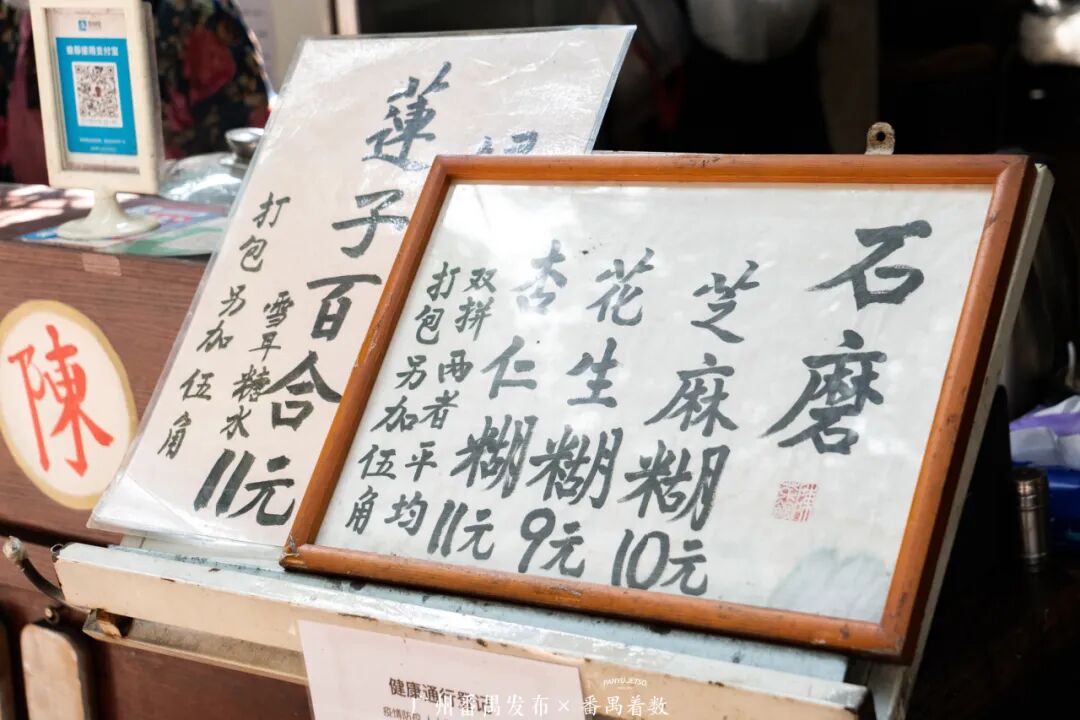 石磨
芝麻糊10元
花生糊9元
杏仁糊11元
双拼两者平均
打包另加伍角
蓮子百合
雪耳糖水
11元
打包另加伍角
陳
推荐使用支付宝
健康通行登记
PANYU JETSO
广州番禺发布×番禺着数